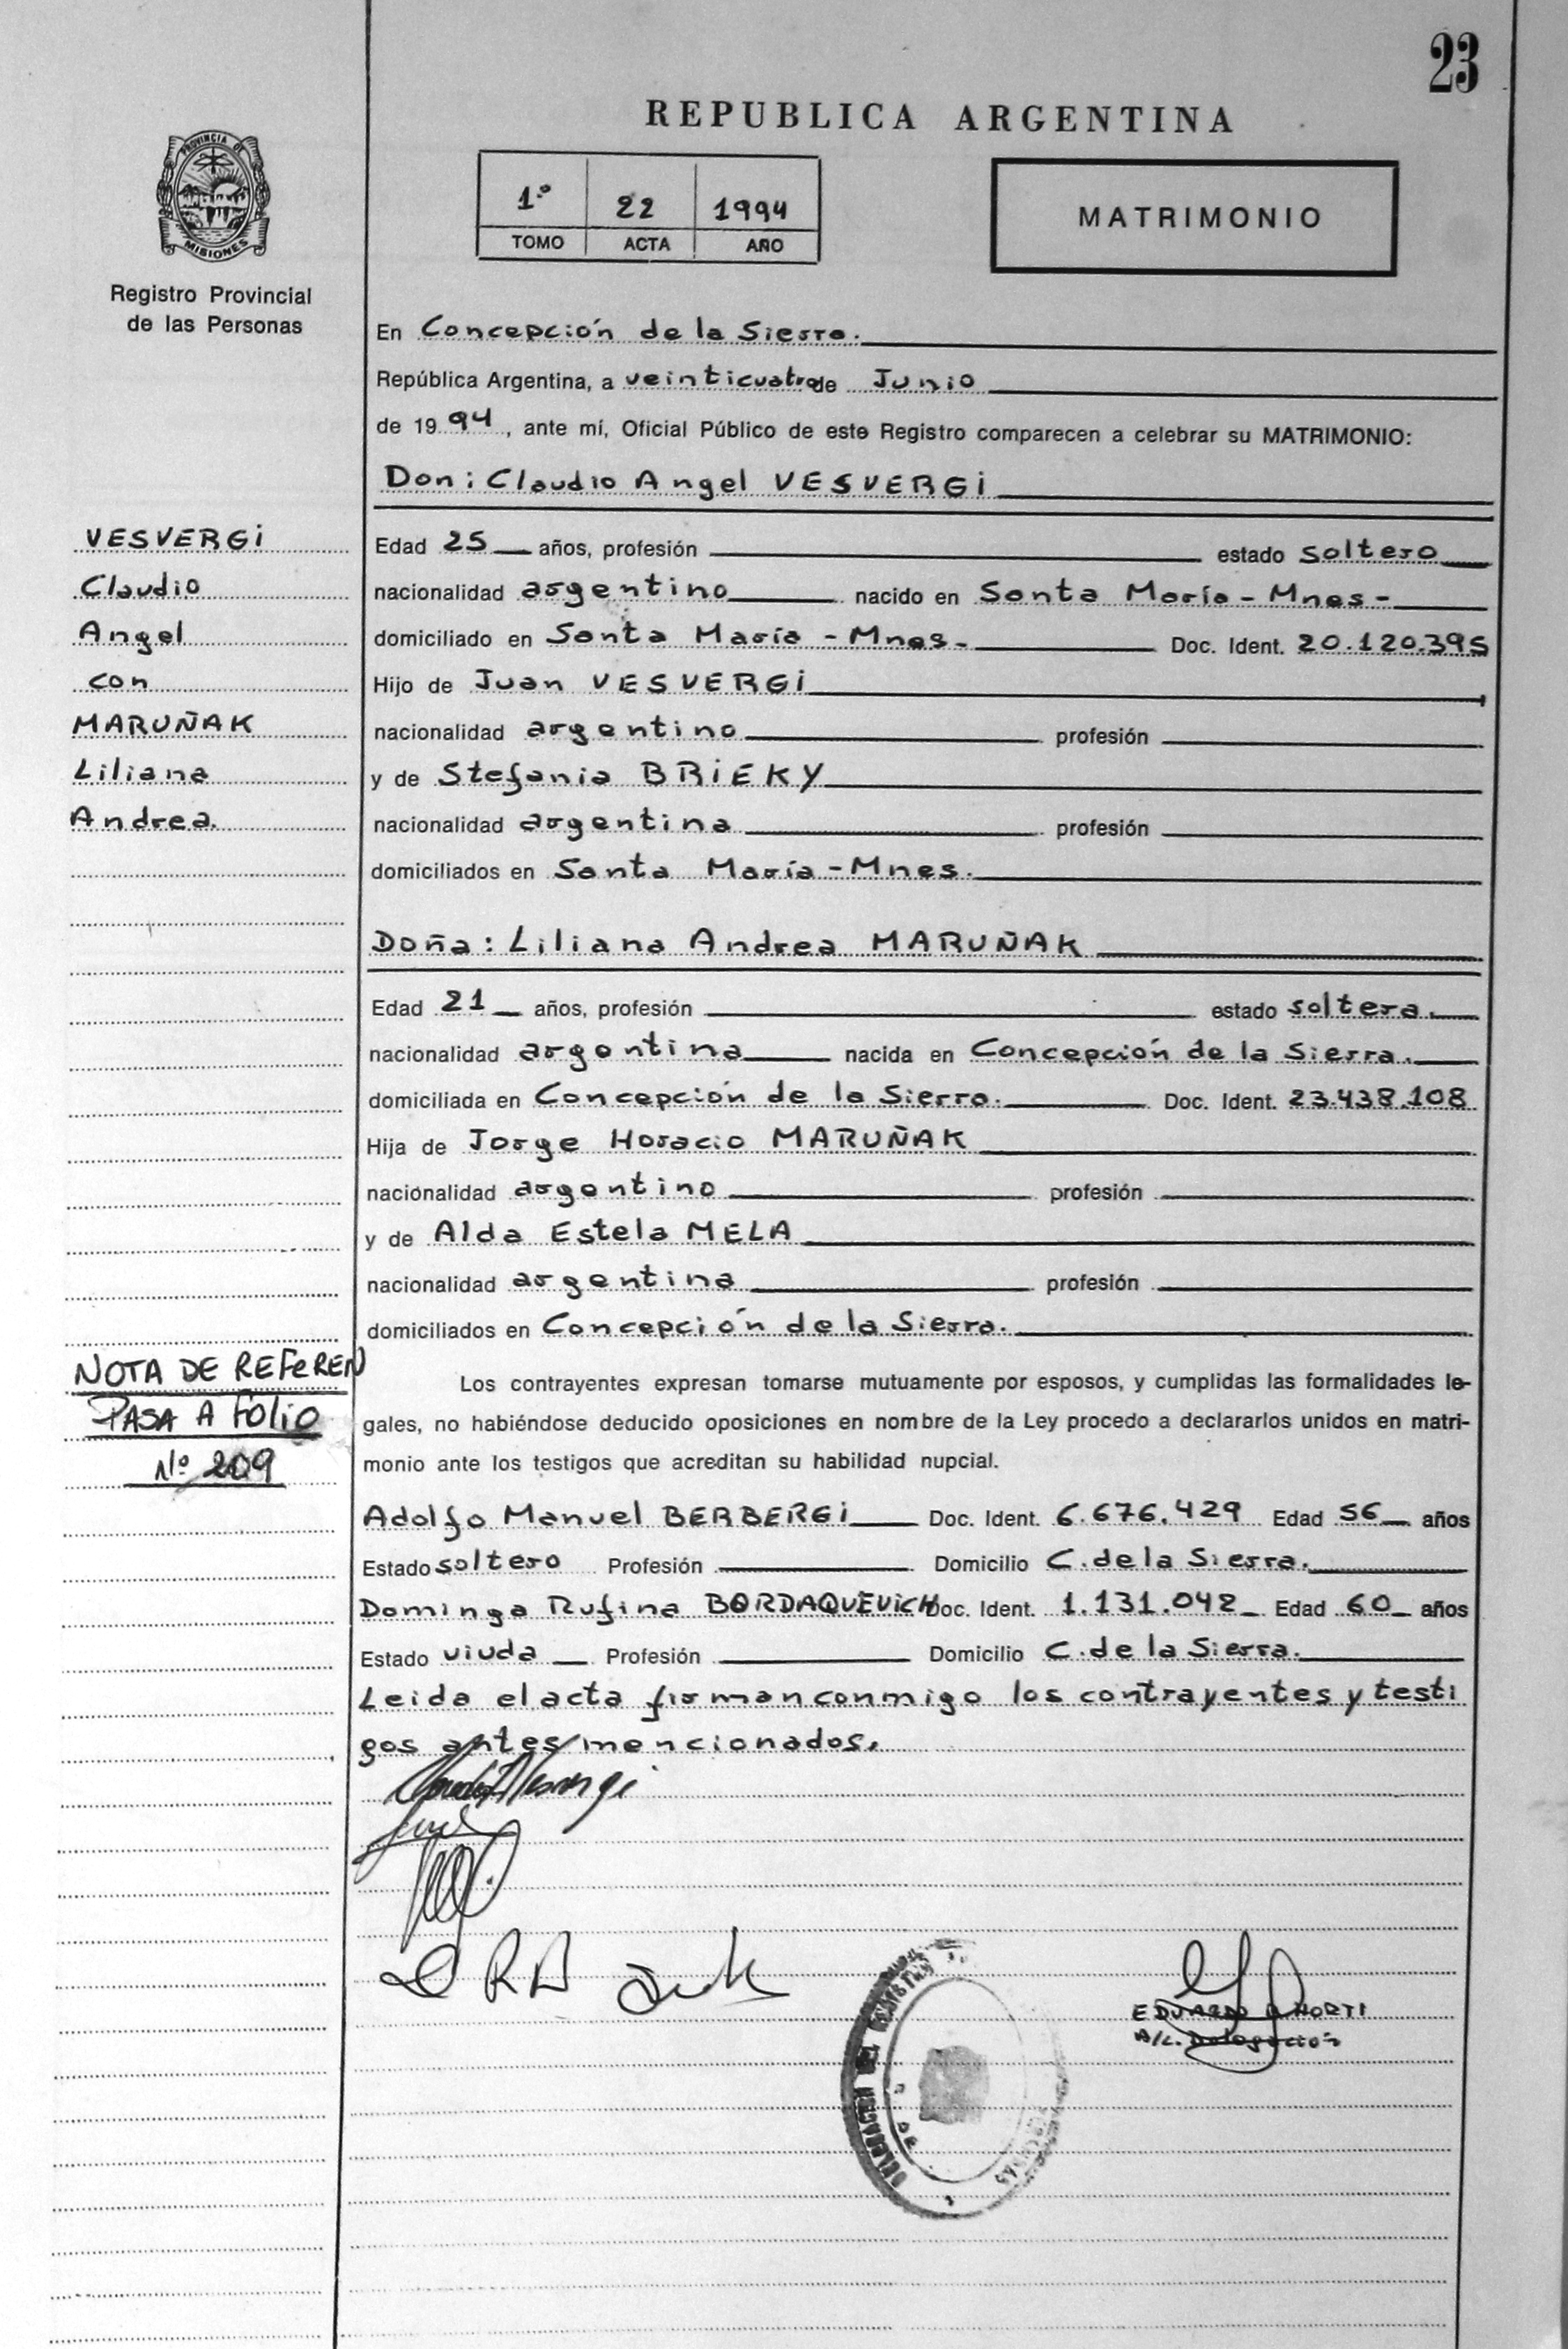 23
REPUBLICA ARGENTINA
PROVINCIA DE
MISIONES
Registro Provincial
de las Personas
1º 22 1994
TOMO ACTA AÑO
MATRIMONIO
En Concepción de la Sierra.
República Argentina, a veinticuatro de Junio
de 1994, ante mí, Oficial Público de este Registro comparecen a celebrar su MATRIMONIO:
Don: Claudio Angel VESVERGi
VESVERGi
Claudio
Angel
con
MARUÑAK
Liliana
Andrea.
Edad 25 años, profesión estado soltero
nacionalidad argentino nacido en Santa María - Mnes -
domiciliado en Santa María - Mnes - Doc. Ident. 20.120.395
Hijo de Juan VESVERGi
nacionalidad argentino profesión
y de Stefania BRiEKY
nacionalidad argentina profesión
domiciliados en Santa María - Mnes.
Doña: Liliana Andrea MARUÑAK
Edad 21 años, profesión estado soltera.
nacionalidad argentina nacida en Concepción de la Sierra.
domiciliada en Concepción de la Sierra. Doc. Ident. 23.438.108
Hija de Jorge Horacio MARUÑAK
nacionalidad argentino profesión
y de Alda Estela MELA
nacionalidad argentina profesión
domiciliados en Concepción de la Sierra.
NOTA DE REFEREN
PASA A FOLIO
Nº 209
Los contrayentes expresan tomarse mutuamente por esposos, y cumplidas las formalidades le-
gales, no habiéndose deducido oposiciones en nombre de la Ley procedo a declararlos unidos en matri-
monio ante los testigos que acreditan su habilidad nupcial.
Adolfo Manuel BERBERGi Doc. Ident. 6.676.429 Edad 56 años
Estado soltero Profesión Domicilio C. de la Sierra.
Dominga Rufina BORDAQUEVICH Doc. Ident. 1.131.042 Edad 60 años
Estado viuda Profesión Domicilio C. de la Sierra.
Leida el acta firman conmigo los contrayentes y testi
gos antes mencionados.
EDUARDO HORTI
A/C. Delegacion